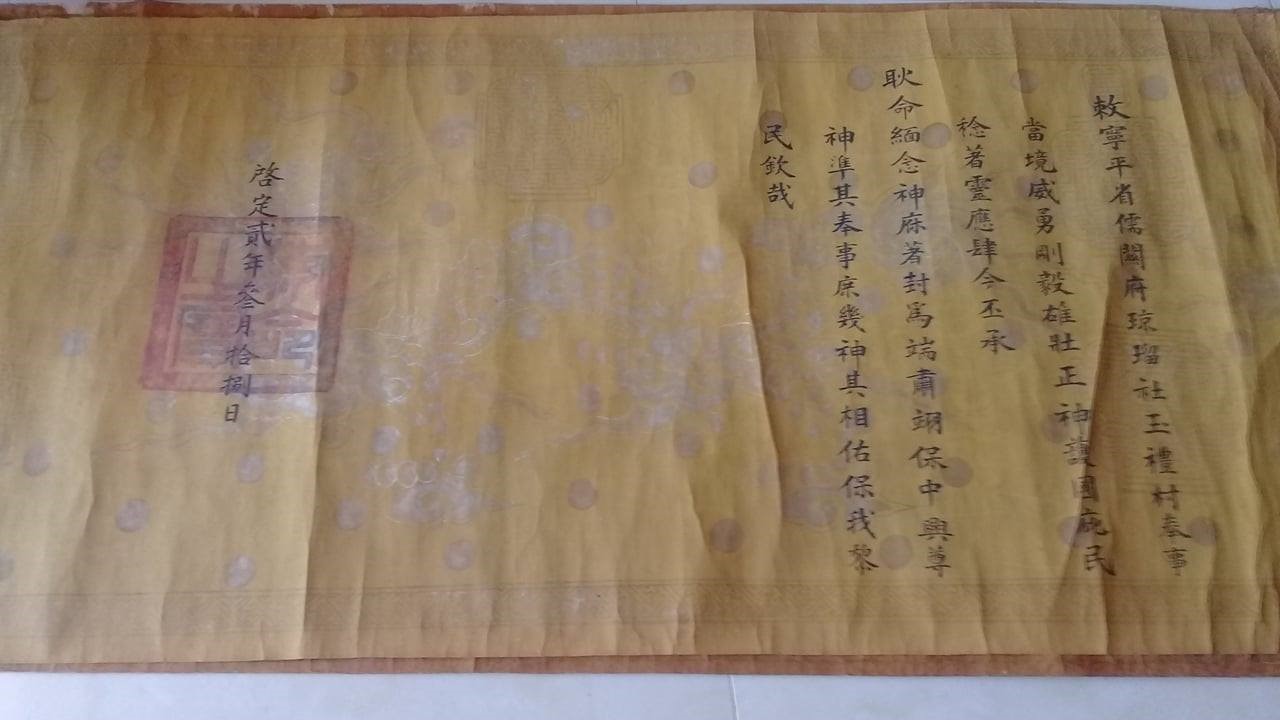 敕寧平省儒關府琼瑠社玉禮村奉事
當境威勇剛毅雄壯正神護國庇民
稔著靈應肆今丕承
耿命緬念神庥著封爲端肅翊保中興尊
神準其奉事庶幾神其相佑保我黎
民欽哉
啓定貳年叄月拾捌日